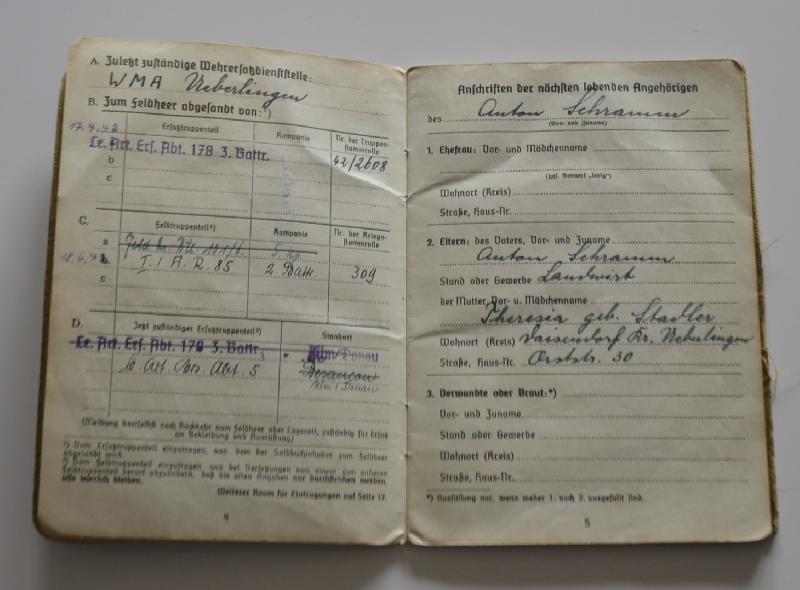 A. Zuletzt zuständige Wehrersatzdienststelle:
WMA Ueberlingen
B. Zum Feldheer abgesandt von:¹)
Ersatztruppenteil Kompanie Nr. der Truppen-stammrolle
17.4.42
a Le. Art. Ers. Abt. 178 3. Battr. 42/2608
b
c
C.
Feldtruppenteil²) Kompanie Nr. der Kriegs-stammrolle
a Feld
b I. / A. R. 85 2. Battr. 309
c
D.
Jetzt zuständiger Ersatztruppenteil²) Standort
Le. Art. Ers. Abt. 178 3. Battr. Ulm/Donau
Art. Ers. Abt. 5 Besancon
Ulm / Donau
(Meldung dortselbst nach Rückkehr vom Feldheer oder Lazarett, zuständig für Ersatz
an Bekleidung und Ausrüstung)
¹) Vom Ersatztruppenteil einzutragen, von dem der Soldbuchinhaber zum Feldheer
abgesandt wird.
²) Vom Feldtruppenteil einzutragen und bei Versetzungen von einem zum anderen
Feldtruppenteil derart abzuändern, daß die alten Angaben nur durchstrichen werden,
also leserlich bleiben.
Weiterer Raum für Eintragungen auf Seite 17.
4
Anschriften der nächsten lebenden Angehörigen
des Anton Schramm
(Vor- und Zuname)
1. Ehefrau: Vor- und Mädchenname
(ggf. Vermerk „ledig“)
Wohnort (Kreis)
Straße, Haus-Nr.
2. Eltern: des Vaters, Vor- und Zuname
Anton Schramm
Stand oder Gewerbe Landwirt
der Mutter, Vor- u. Mädchenname
Theresia geb. Stadler
Wohnort (Kreis) Daisendorf Kr. Ueberlingen
Straße, Haus-Nr. Ortstr. 30
3. Verwandte oder Braut:*)
Vor- und Zuname
Stand oder Gewerbe
Wohnort (Kreis)
Straße, Haus-Nr.
*) Ausfüllung nur, wenn weder 1. noch 2. ausgefüllt sind.
5